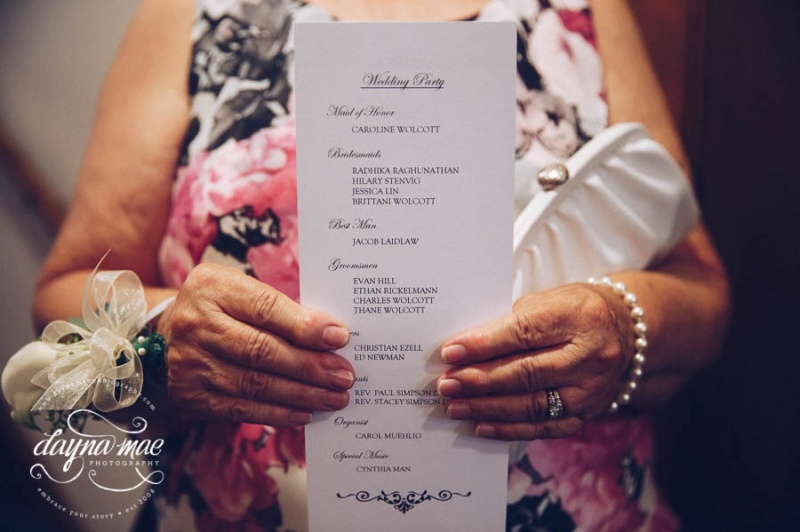 Wedding Party
Maid of Honor
CAROLINE WOLCOTT
Bridesmaids
RADHIKA RAGHUNATHAN
HILARY STENVIG
JESSICA LIN
BRITTANI WOLCOTT
Best Man
JACOB LAIDLAW
Groomsmen
EVAN HILL
ETHAN RICKELMANN
CHARLES WOLCOTT
THANE WOLCOTT
CHRISTIAN EZELL
ED NEWMAN
REV. PAUL SIMPSON
REV. STACEY SIMPSON
Organist
CAROL MUEHLIG
Special Music
CYNTHIA MAN
dayna mae
PHOTOGRAPHY
embrace your story • est 2008